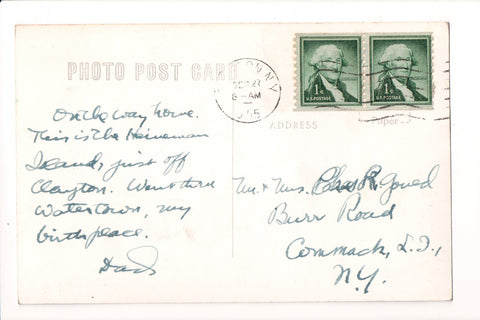 PHOTO POST CARD
N.Y.
SEP 23
8 - AM
1955
1¢
U.S. POSTAGE
1¢
U.S. POSTAGE
ADDRESS
On the way home.
This is the Heineman
Islands just off
Clayton. Went thru
Watertown, my
birthplace.
Dad
Mr. & Mrs. Chas R. Gould
Burr Road
Commack, L.I.,
N.Y.